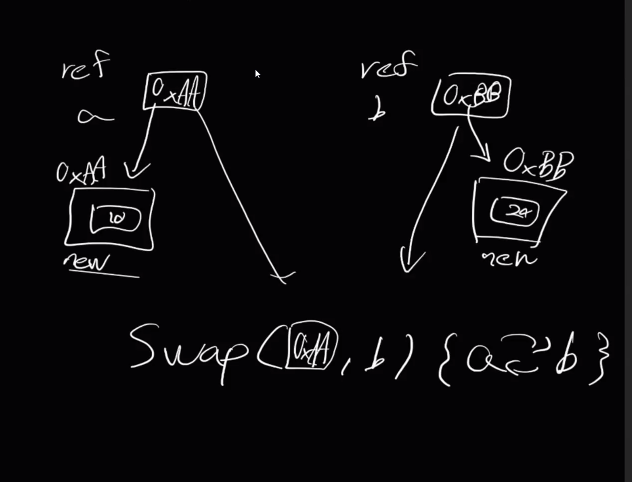 ref
0xAA
a
0xAA
10
new
ref
0xBB
b
0xBB
24
new
Swap(0xAA, b) {a⇄b}